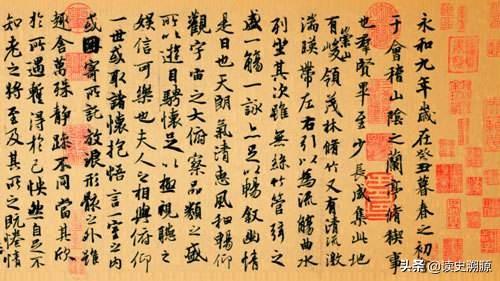 永和九年歲在癸丑暮春之初會
于會稽山陰之蘭亭脩稧事
也羣賢畢至少長咸集此地
有崇山峻領茂林脩竹又有清流激
湍暎帶左右引以為流觴曲水
列坐其次雖無絲竹管弦之
盛一觴一詠亦足以暢叙幽情
是日也天朗氣清惠風和暢仰
觀宇宙之大俯察品類之盛
所以遊目騁懷足以極視聽之
娛信可樂也夫人之相與俯仰
一世或取諸懷抱悟言一室之內
或因寄所託放浪形骸之外雖
趣舍萬殊靜躁不同當其欣
於所遇暫得於己快然自足不
知老之將至及其所之既惓情
头条 @读史溯源